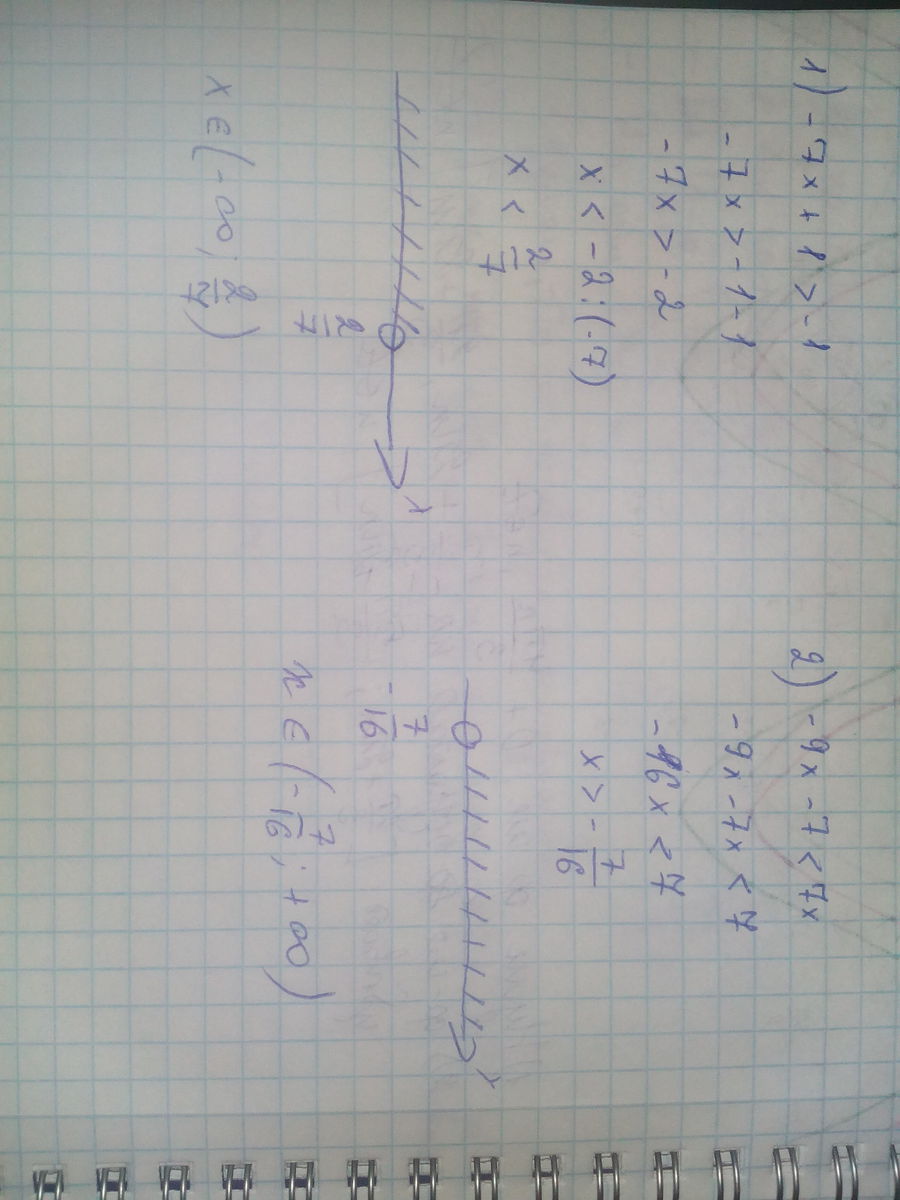 1) - 7x + 1 > - 1
- 7x > - 1 - 1
- 7x > - 2
x < - 2 : (-7)
x < 2/7
x
2/7
x ∈ (- ∞; 2/7)
2) - 9x - 7 < 7x
- 9x - 7x < 7
- 16x < 7
x > - 7/16
x
- 7/16
x ∈ (- 7/16; + ∞)